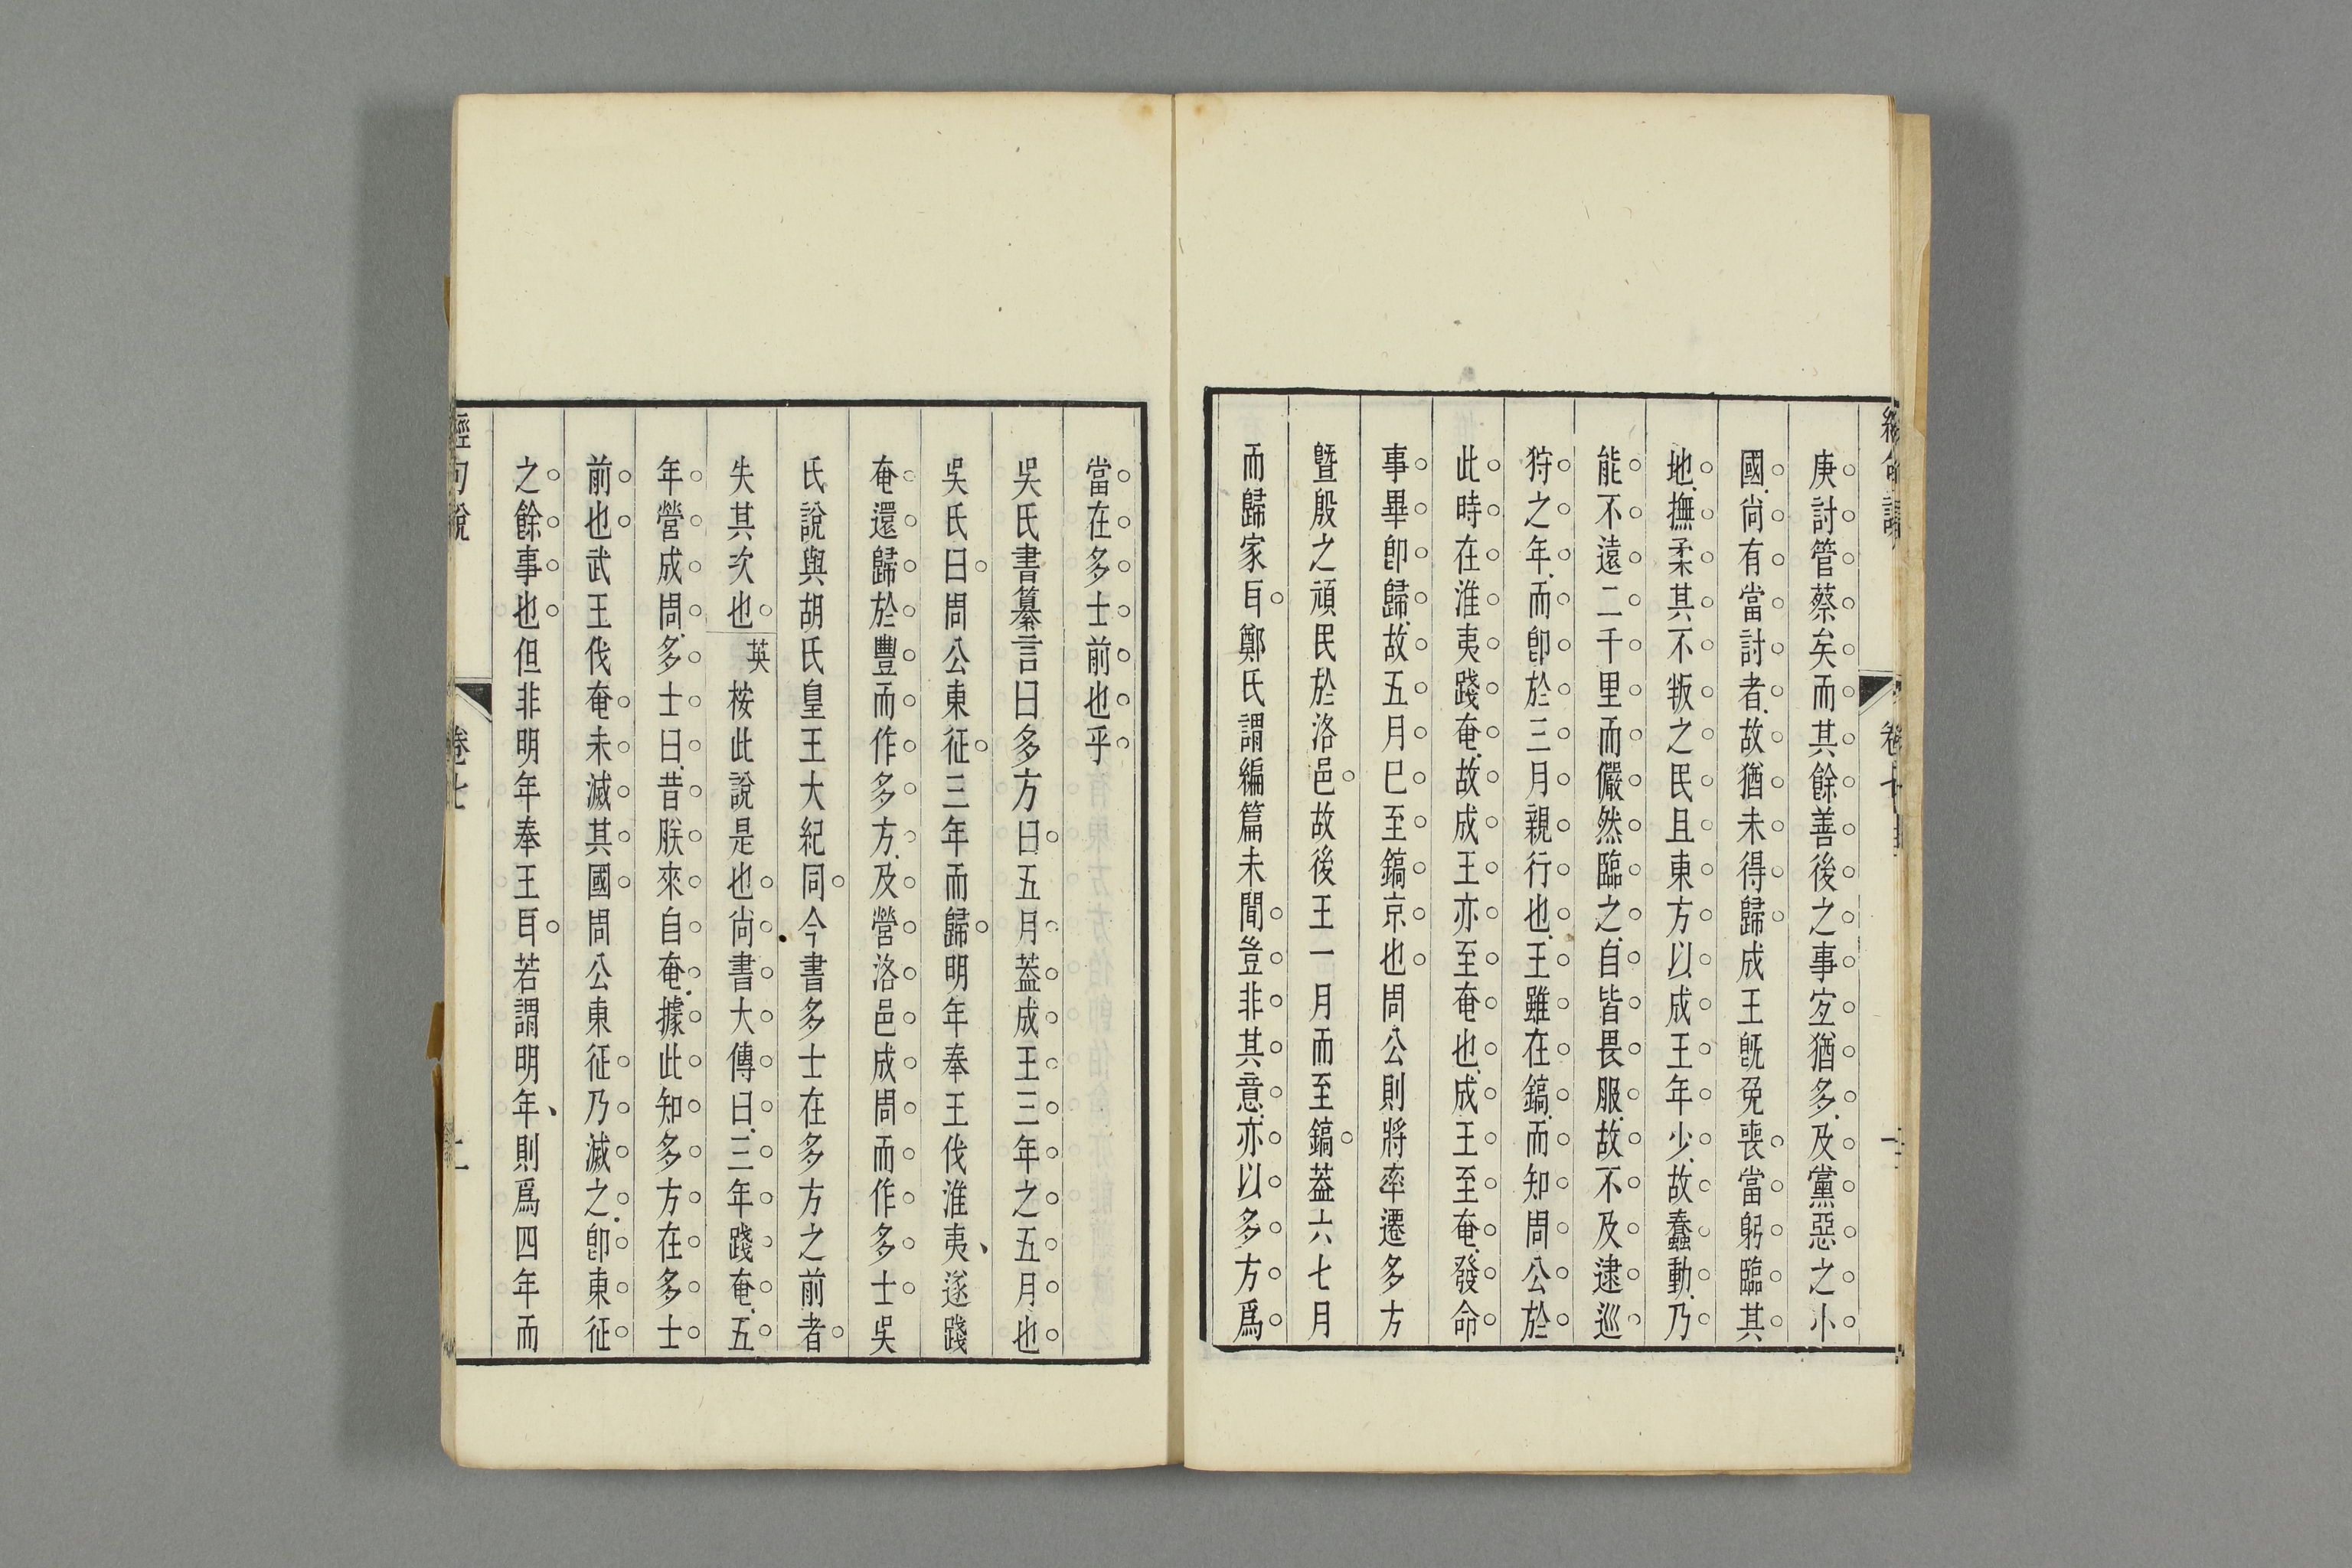 庚討管蔡矣而其餘善後之事宐猶多及黨惡之小
國尙有當討者故猶未得歸成王旣免喪當躬臨其
地撫柔其不叛之民且東方以成王年少故蠢動乃
能不遠二千里而儼然臨之自皆畏服故不及逮巡
狩之年而卽於三月親行也王雖在鎬而知周公於
此時在淮夷踐奄故成王亦至奄也成王至奄發命
事畢卽歸故五月巳至鎬京也周公則將率遷多方
曁殷之頑民於洛邑故後王一月而至鎬葢六七月
而歸家耳鄭氏謂編篇未閒豈非其意亦以多方爲
當在多士前也乎
吳氏書纂言曰多方曰五月葢成王三年之五月也
吳氏曰周公東征三年而歸明年奉王伐淮夷遂踐
奄還歸於豐而作多方及營洛邑成周而作多士吳
氏說與胡氏皇王大紀同今書多士在多方之前者
失其次也英桉此說是也尙書大傳曰三年踐奄五
年營成周多士曰昔朕來自奄據此知多方在多士
前也武王伐奄未滅其國周公東征乃滅之卽東征
之餘事也但非明年奉王耳若謂明年則爲四年而
經句說 卷七